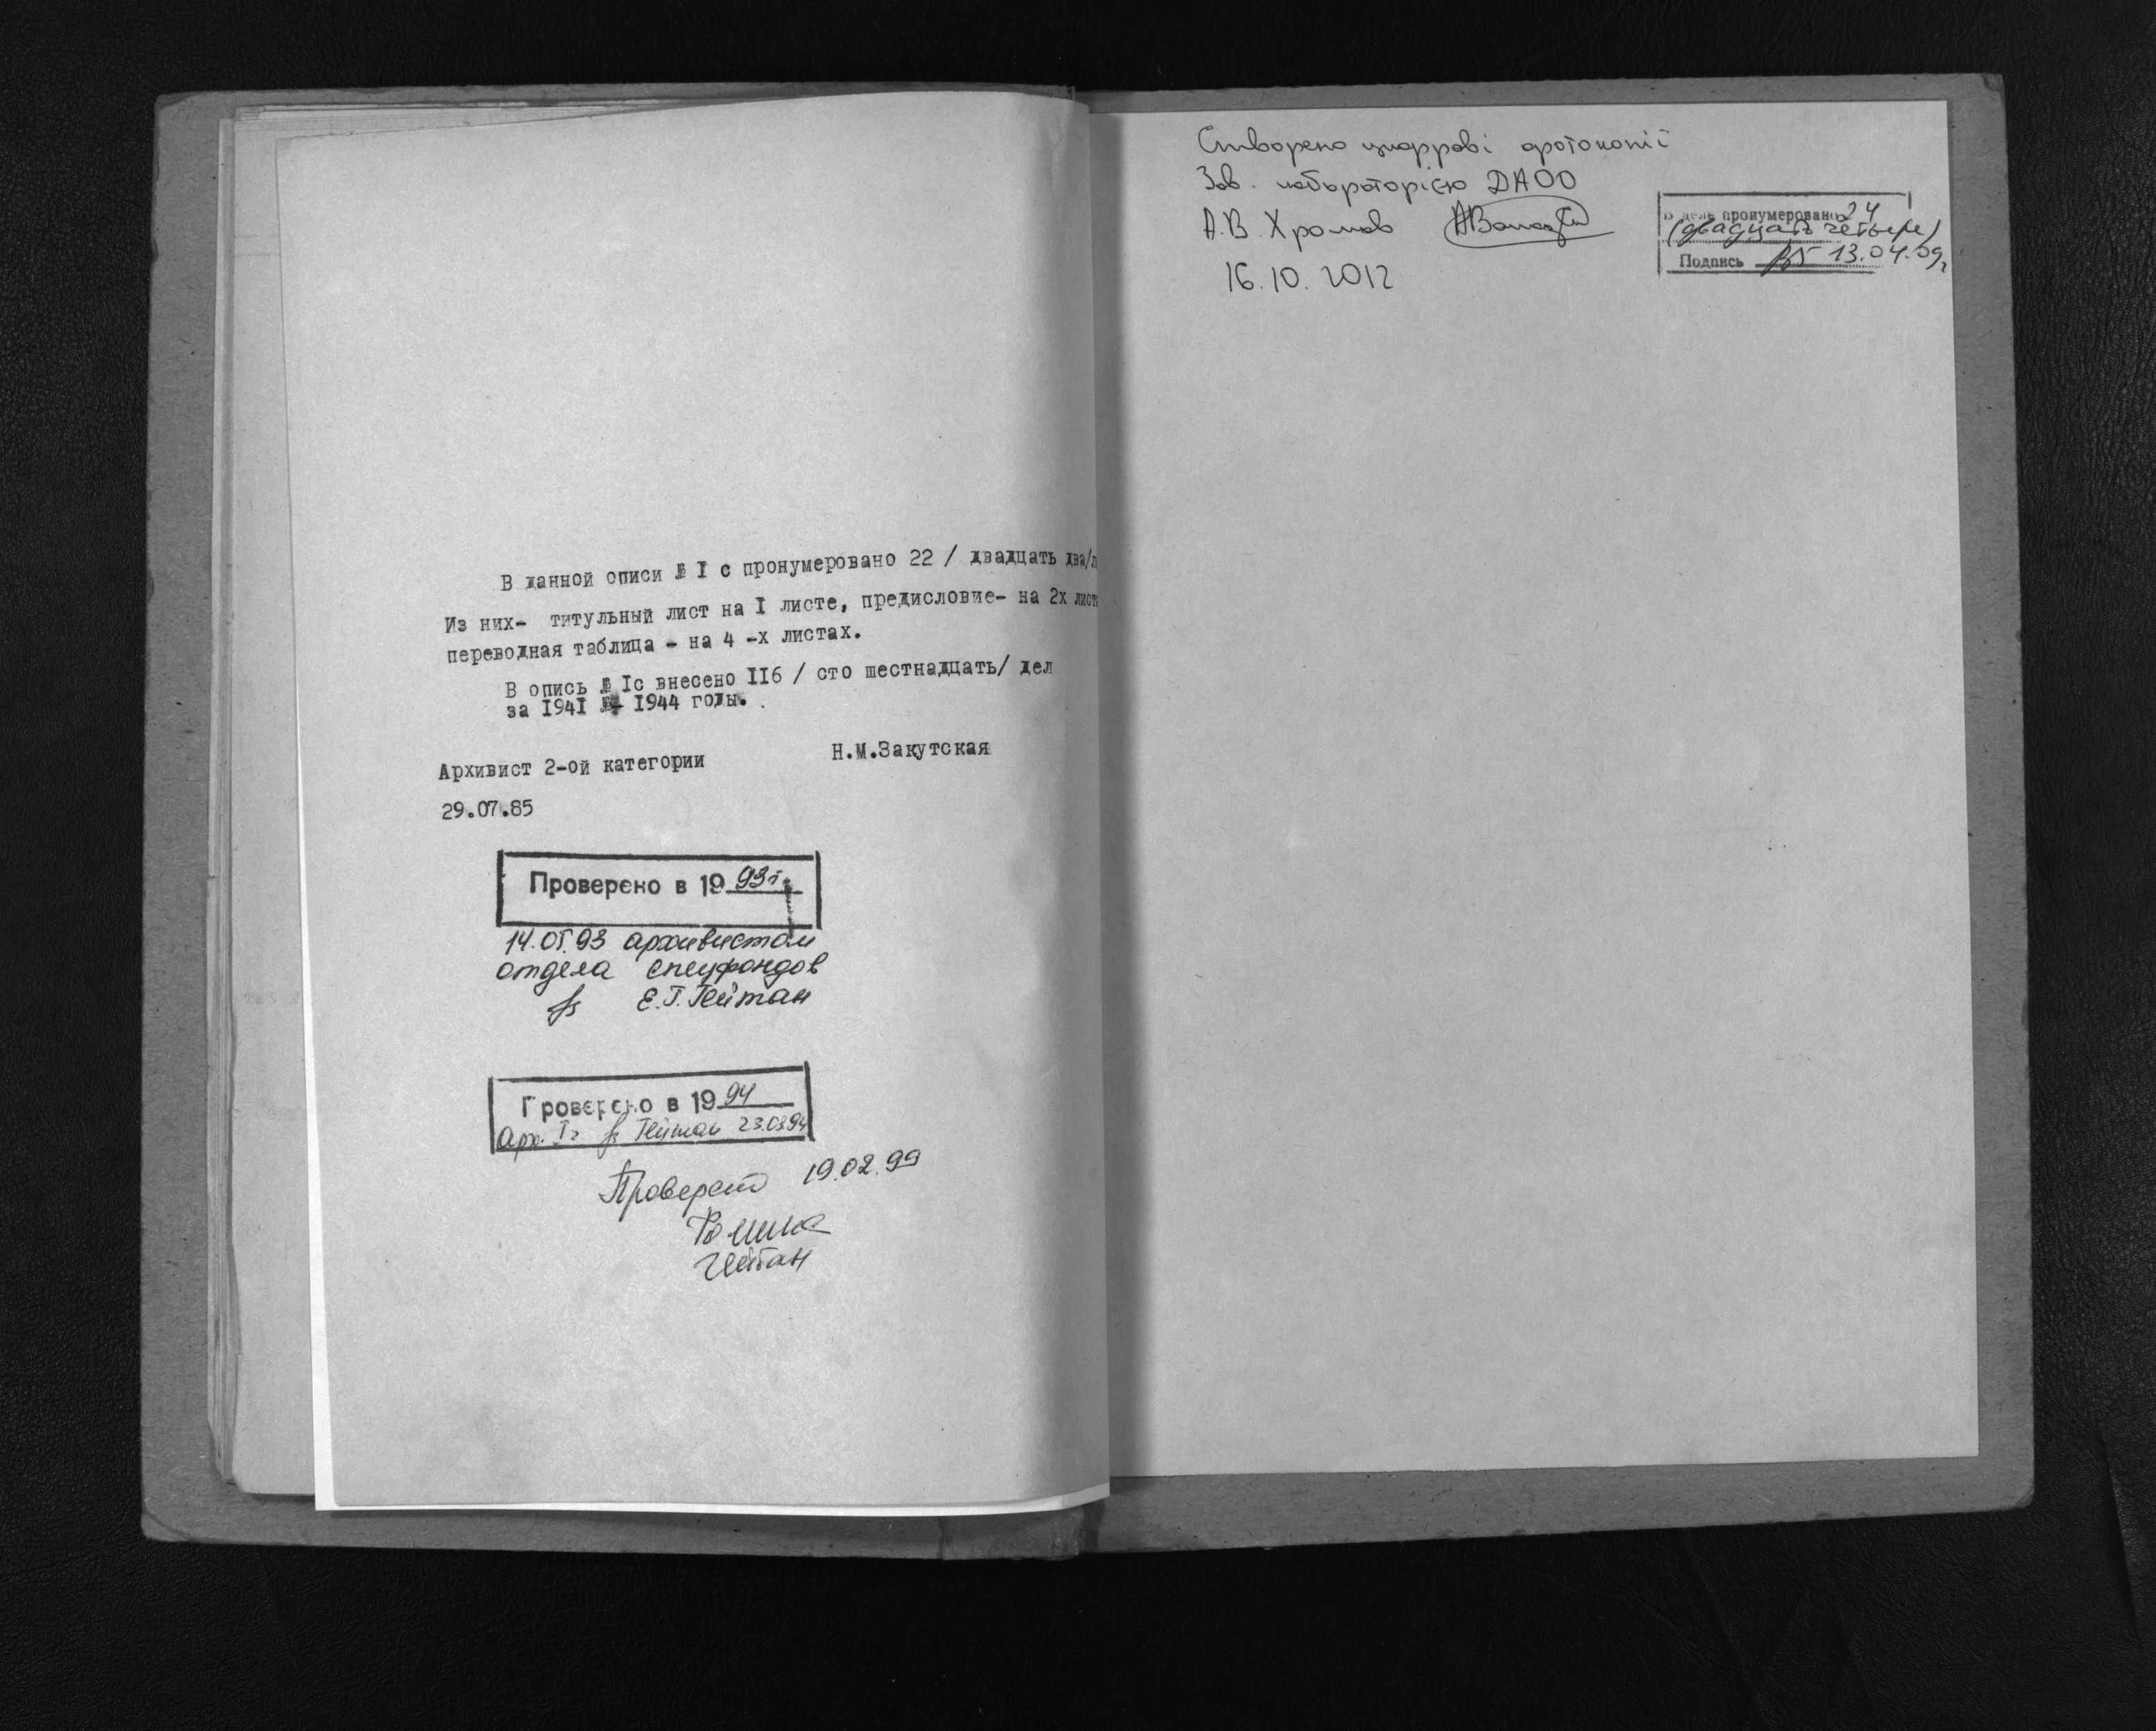 В данной описи № I с пронумеровано 22 / двадцать два/л
Из них- титульный лист на I листе, предисловие- на 2х лист
переводная таблица - на 4 -х листах.
В опись № Iс внесено II6 / сто шестнадцать/ дел
за I94I - 1944 годы.
Архивист 2-ой категории Н.М.Закутская
29.07.85
Проверено в 19 93г.
14.01.93 архивистом
отдела спецфондов
Е.Г.
Проверено в 19 94
Арх. 23.03.94
19.02.99
Створено цифрові фотокопії
Зав. лабораторією ДАОО
А.В. Хромов
16.10.2012
В деле пронумеровано 24
(двадцать четыре)
Подпись 13.04.09г